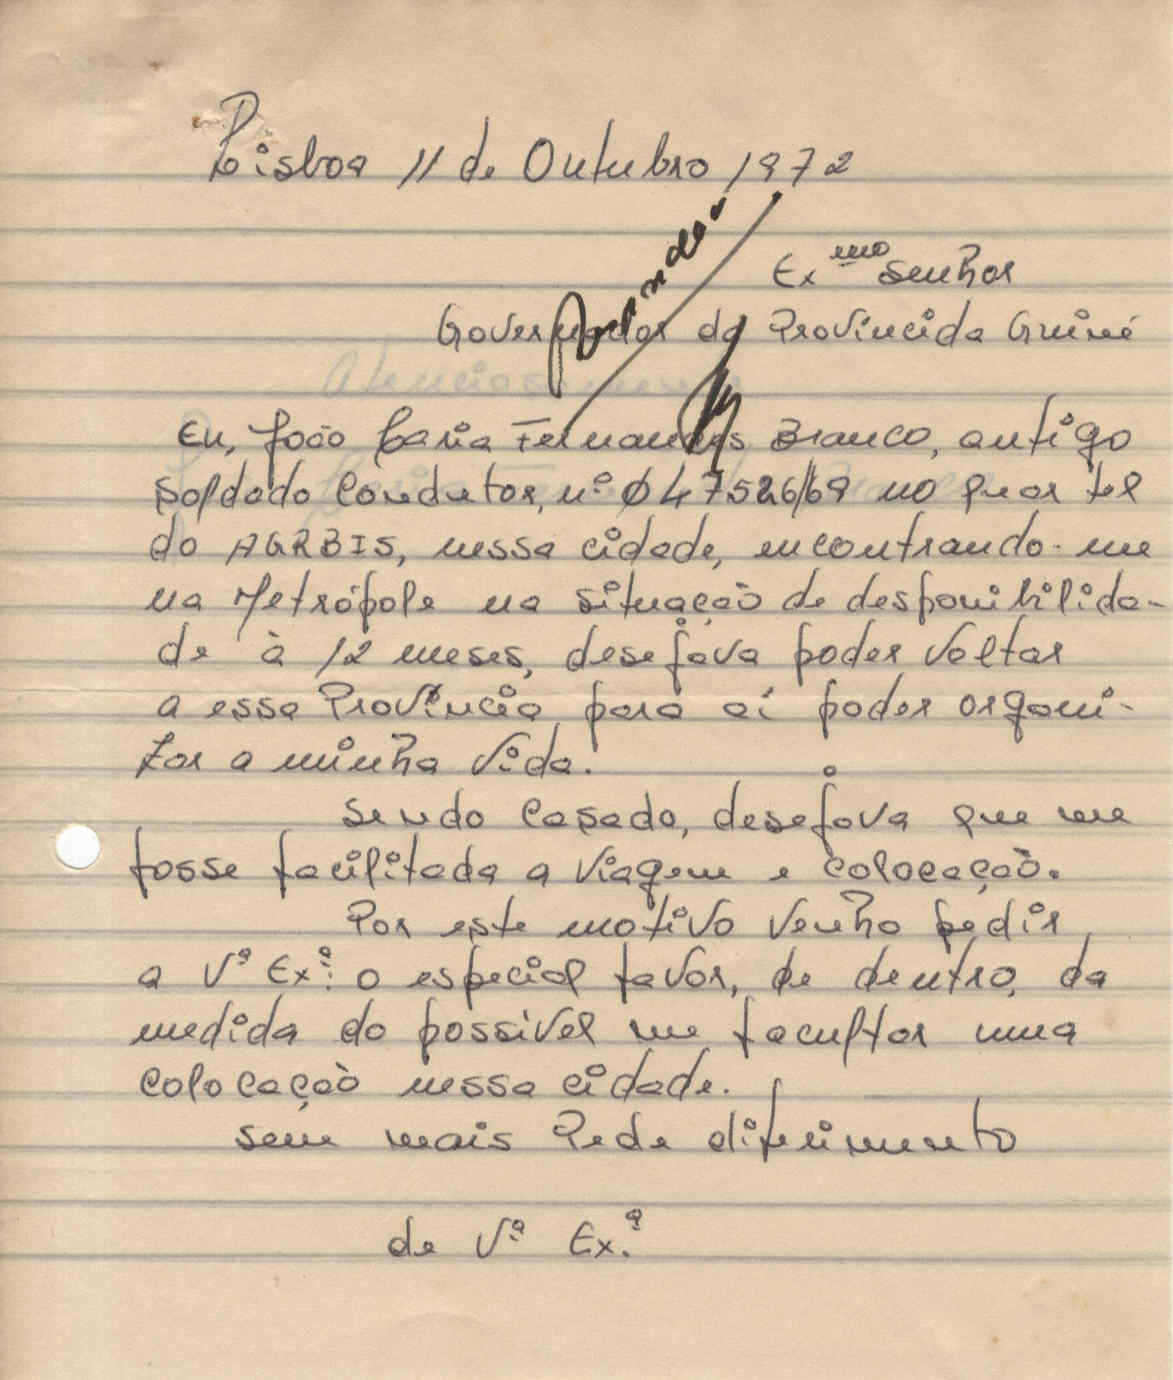 Lisboa 11 de Outubro 1972
Ex.mo Senhor
Governador da Provincida Guiné
Eu, João Caria Fernandes Branco, antigo
soldado Condutor, nº 047526/69 no quartel
do AGRBIS, nessa cidade, encontrando-me
na Metrópole na situação de desponibilida-
de à 12 meses, desejava poder voltar
a essa Província para aí poder organi-
zar a minha vida.
Sendo Casado, desejava que me
fosse facilitada a viagem e colocação.
Por este motivo venho pedir
a Vª Exª: o especial favor, de dentro, da
medida do possível me facultar uma
colocação nessa cidade.
Sem mais Pede diferimento
de Vª Ex.ª